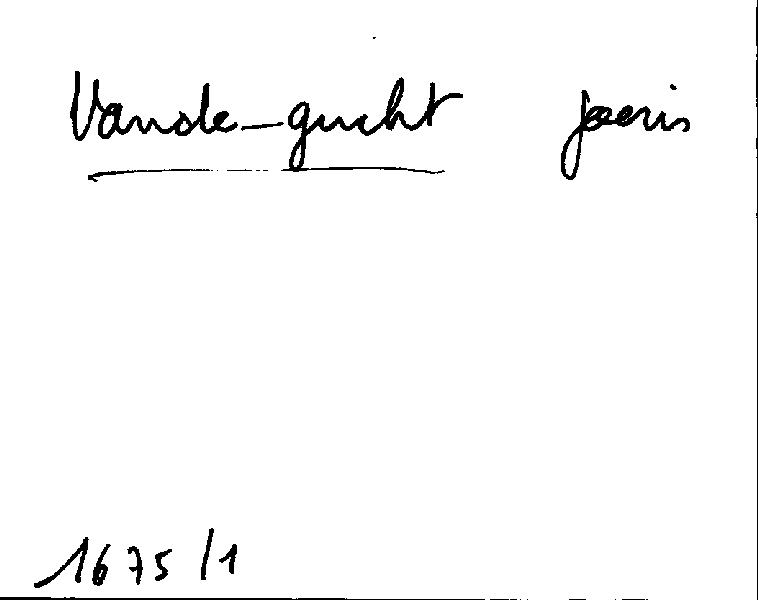 Vande-gucht joeris
1675/1